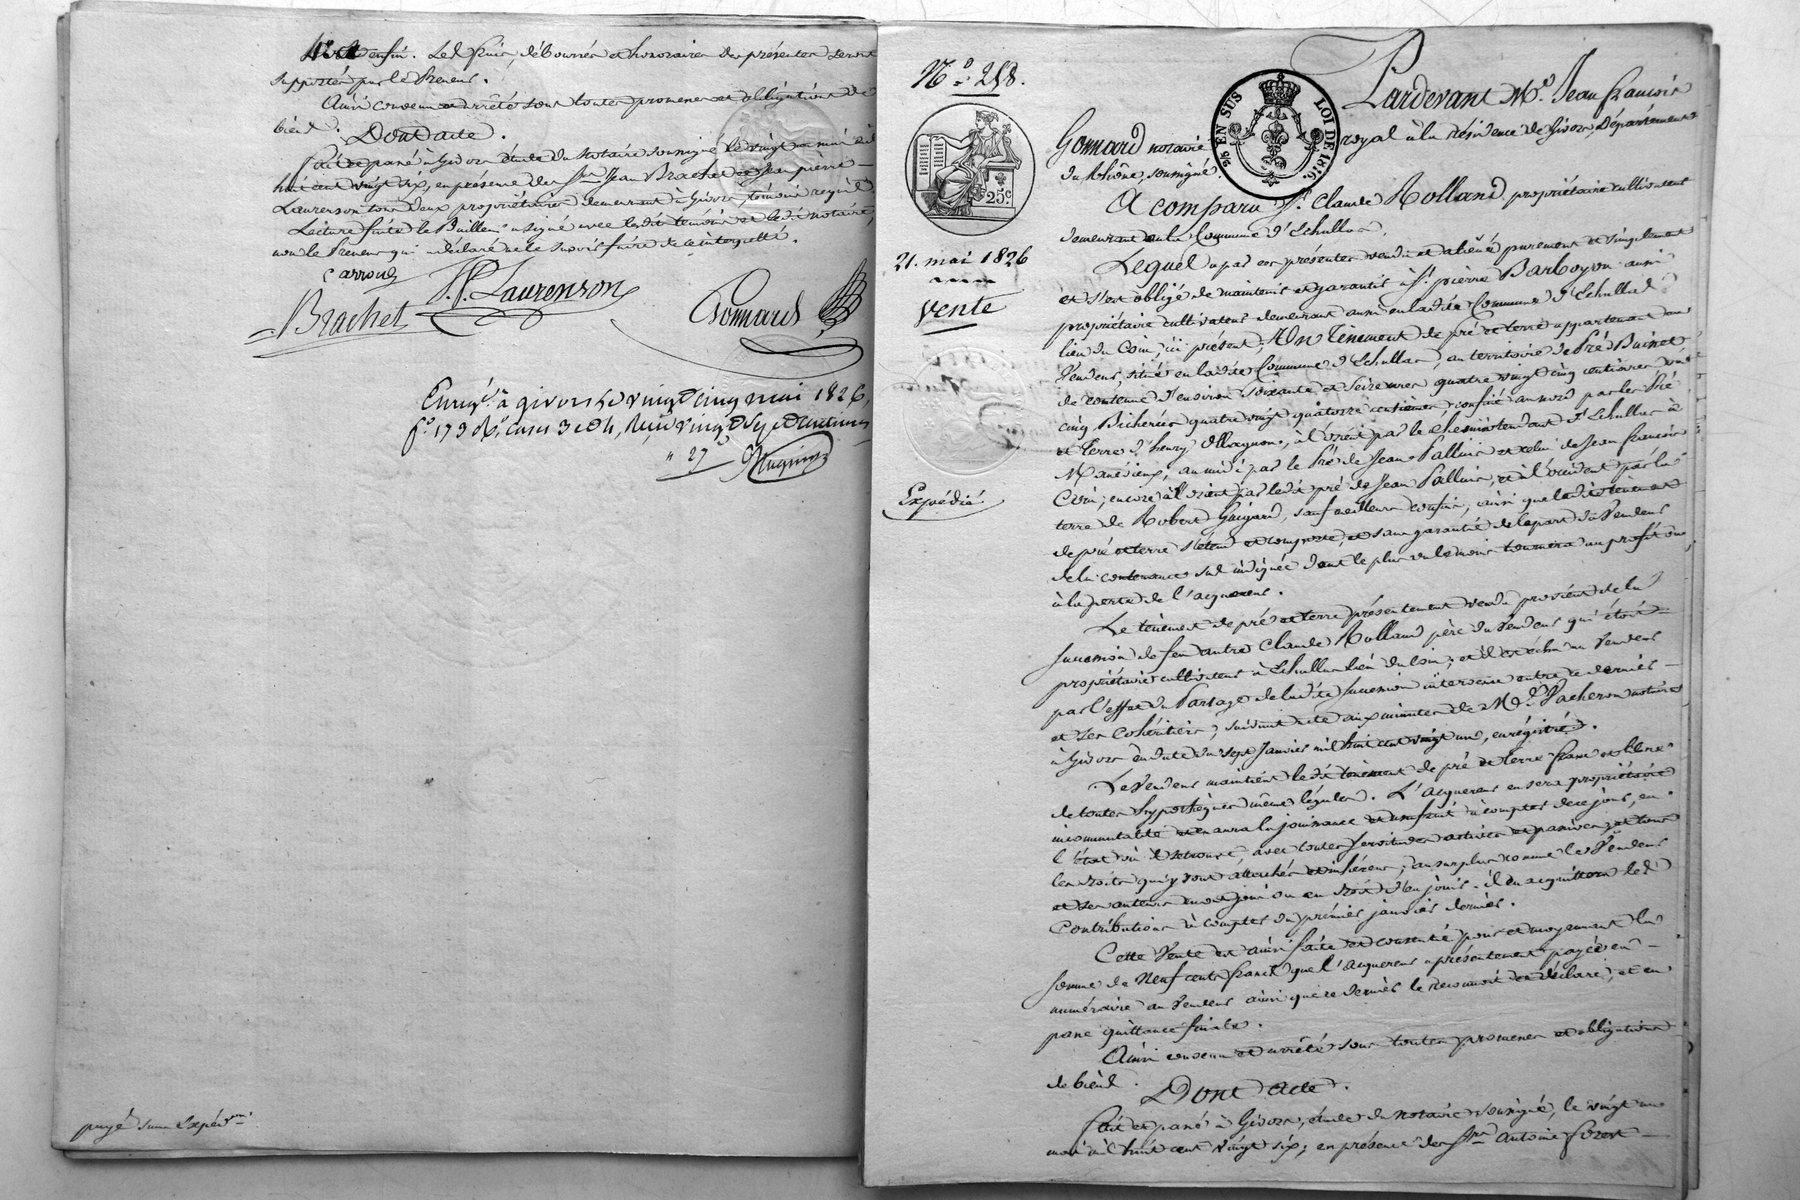 enfin. Les frais, déboursés et honoraires des présentes seront
supportés par le Preneur.
Ainsi convenu et arrêté sous toutes promesses et obligations de
bien d.
Dont acte.
Fait et passé à Givors étude du Notaire soussigné le vingt un mai mil
huit cent vingt six, en présence des Srs Jean Brachet et Jean pierre
Laurenson tous deux propriétaires demeurant à Givors, témoins requis.
Lecture faite le Bailleur a signé avec lesdits témoins et ledit notaire,
non le Preneur qui a déclaré ne le savoir faire de ce interpellé.
Carroud
J.P. Laurenson
Brachet
Gomard
Enregé. à givors le vingt cinq mai 1826,
fo. 179 Ro. cases 3 et 4, Reçu
" 27
payé sans expéon.
No. 258.
25c
25 EN SUS
LOI DE 1816.
21. mai 1826
Vente
Expédié
Pardevant Me. Jean françois
Gomard notaire royal à la résidence de Givors Département
du Rhône, soussigné.
A comparu Sr. Claude Rolland propriétaire cultivateur
demeurant en la Commune d'Echallas.
Lequel a par ces présentes vendu et aliéné purement et simplement
et s'est obligé de maintenir et garantir à Sr. pierre Barboyon aussi
propriétaire cultivateur demeurant aussi en ladite Commune d'Echallas
lieu du Coin, ici présent, Un Tènement de pré et terre appartenant au
Vendeur, situé en ladite Commune d'Echallas, au territoire de Pré
de contenue d'environ soixante et seize ares quatre vingt cinq centiares
cinq Bicherées quatre vingt quatorze centièmes, confiné au nord par les Pré
et terre d'henry Ollagnon, à l'orient par le chemin tendant d'Echallas à
au midi par le Pré de Jean Palluis et celui de Jean François
Coin; encore à l'orient par ledit pré de Jean Palluis, et à l'occident par la
terre de Robert Guigard, sauf meilleurs confins, ainsi que ledit tènement
de pré et terre s'étend et comporte, et sans garantie de la part du Vendeur
de la contenance sus indiquée dont le plus ou le moins tournera au profit ou
à la perte de l'acquéreur.
Le tènement de pré et terre présentement vendu provient de la
succession de feu autre Claude Rolland père du Vendeur qui était
propriétaire cultivateur à Echallas lieu du Coin; et il est échu au Vendeur
par l'effet du Partage de ladite succession intervenu entre ce dernier
et ses Cohéritiers, suivant acte aux minutes de Me. Vacheron notaire
à Givors en date du sept Janvier mil huit cent vingt un, enrégistré.
Le Vendeur maintient ledit tènement de pré et terre franc et libre
de toutes hypothèques même légales. L'acquéreur en sera propriétaire
incommutable et en aura la jouissance et usufruit à compter de ce jour, en
l'état où il se trouve, avec toutes servitudes actives et passives, et tous
les droits qui y sont attachés et inhérens, au surplus comme le Vendeur
et ses auteurs en ont joui ou eu droit d'en jouir. il en acquittera les
Contributions à compter du premier janvier dernier.
Cette Vente est ainsi faite et consentie pour et moyennant la
somme de Neuf cents francs que l'acquéreur a présentement payée en
numéraire au Vendeur ainsi que ce dernier le reconnoit et déclare, et en
passe quittance finale.
Ainsi convenu et arrêté sous toutes promesses et obligations
de bien d.
Dont acte.
Fait et passé à Givors, étude du notaire soussigné, le vingt un
mai mil huit cent vingt six, en présence des Srs Antoine forest